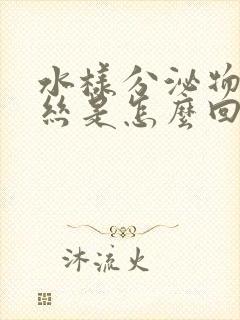 水樣分泌物
絲是怎麼回
沐流火